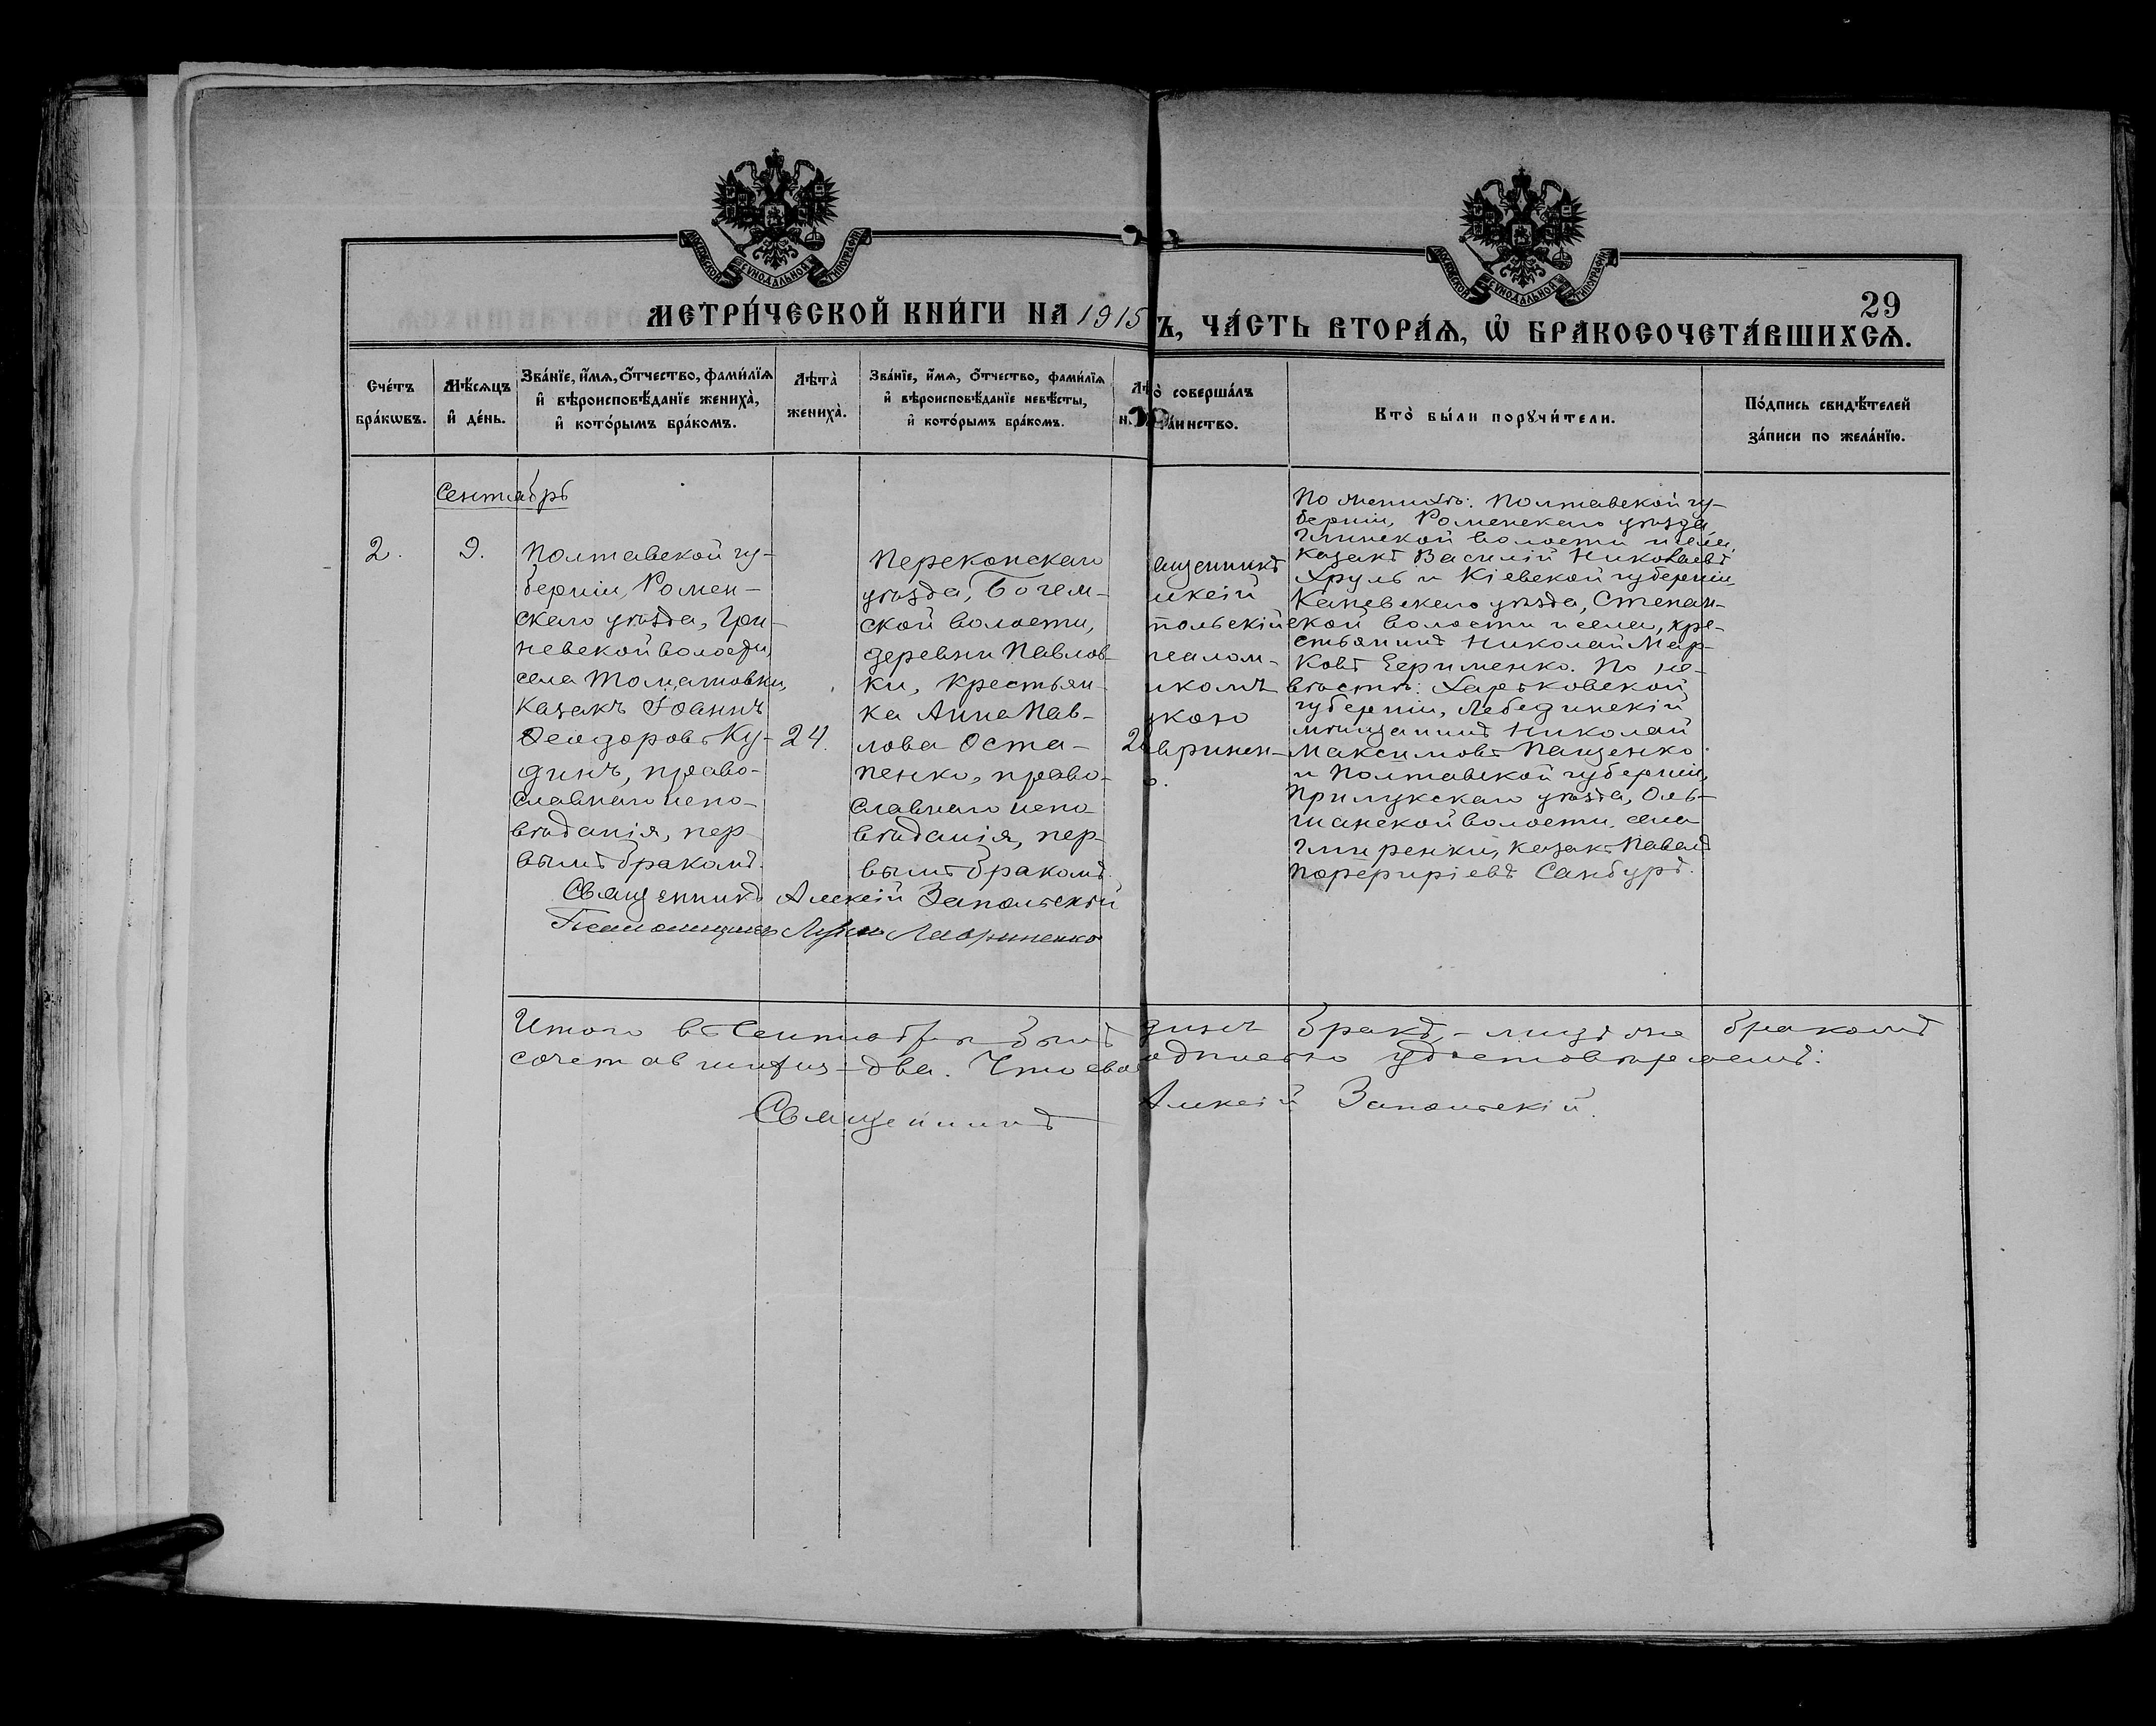 МОСКОВСКОЙ СѴНОДАЛЬНОЙ ТИПОГРАФІИ
МОСКОВСКОЙ СѴНОДАЛЬНОЙ ТИПОГРАФІИ
29
МЕТРИ́ЧЕСКОЙ КНИ́ГИ НА 1915
Ъ, ЧА́СТЬ ВТОРА́Ѧ, Ѡ҆ БРАКОСОЧЕТА́ВШИХСѦ.
Сче́тъ
бра́кѡвъ.
Мѣ́сѧцъ
и҆ де́нь.
Зва́нїе, и҆́мѧ, ѻ҆́тчество, фами́лїѧ
и҆ вѣроисповѣ́данїе жениха̀,
и҆ кото́рымъ бра́комъ.
Лѣта̀
жениха̀.
Зва́нїе, и҆́мѧ, ѻ҆́тчество, фами́лїѧ
и҆ вѣроисповѣ́данїе невѣ́сты,
и҆ кото́рымъ бра́комъ.
Лѣ
н
о̀ соверша́лъ
та́инство.
Кто̀ бы́ли порꙋчи́тели.
По́дпись свидѣ́телей
за́писи по жела́нїю.
Сентябрь
2.
9.
Полтавской гу-
берніи, Ромен-
скаго уѣзда, Гри-
невской волости,
села Томашовки,
казакъ Іоаннъ
Ѳеодоровъ Ку-
динъ, право-
славнаго испо-
вѣданія, пер-
вымъ бракомъ.
24.
Перекопскаго
уѣзда, Богем-
ской волости,
деревни Павлов-
ки, крестьян-
ка Анна Пав-
лова Оста-
пенко, право-
славнаго испо-
вѣданія, пер-
вымъ бракомъ.
2
ященникъ
лексій
польскій
псалом-
икомъ
укою
вринен-
о.
По женихѣ: Полтавской гу-
берніи, Роменскаго уѣзда,
Глинской волости и села,
казакъ Василій Николаевъ
Хруль и Кіевской губерніи,
Каневскаго уѣзда, Степан-
ской волости и села, кре-
стьянинъ Николай Мар-
ковъ Ефименко. По не-
вѣстѣ: Харьковской
губерніи, Лебединскій
мѣщанинъ Николай
Максимовъ Пащенко
и Полтавской губерніи,
Прилукскаго уѣзда, Оль-
шанской волости, села
Гмиренки, казакъ Павелъ
Порфиріевъ Санбуръ.
Священникъ Алексій Запольскій
Псаломщикъ Лука Лавриненко
Итого въ Сентябрѣ былъ динъ бракъ, - лицъ же бракомъ
сочетавшихся - два. Что сво одписью удостовѣряемъ:
Священникъ Алексій Запольскій.